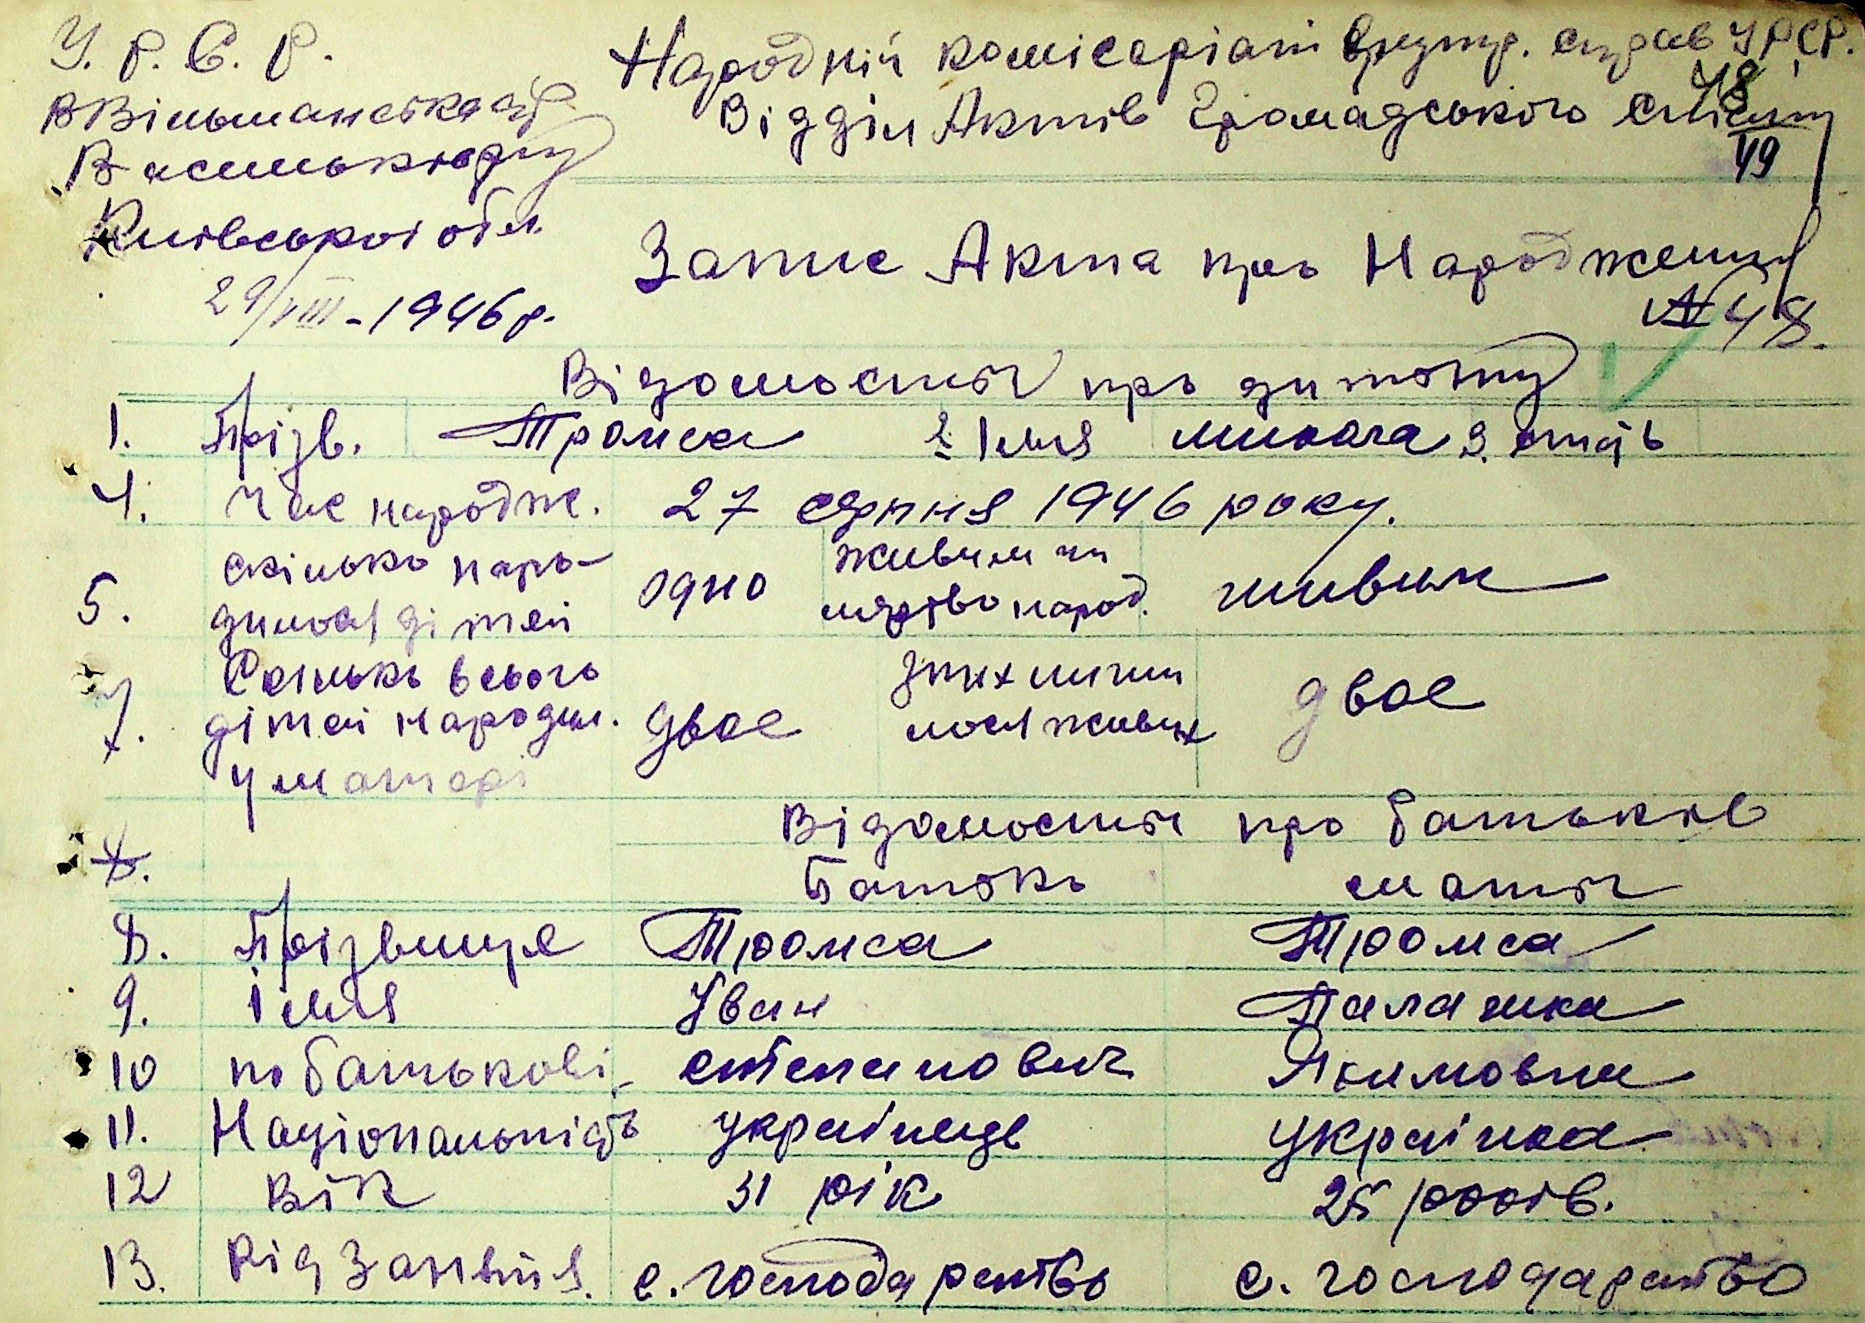 У. Р. С. Р.
Народній комісаріат Внутр. справ УРСР.
Вільшанська с/р
Відділ Актів Громадського Стану
48
49
Васильк. р-ну
Київської обл.
Запис Акта про Народження
29/VIII-1946 р.
№ 48.
Відомості про дитину
1. Прізв. Тромса 2 Імя Микола 3. стать
4. Час народж. 27 серпня 1946 року.
5. скільки наро-
дилось дітей одно живим чи
мертво народ. живим
7. Скільки всього
дітей народил. двоє з них лиши
лося живих двоє
у матері
Відомості про батьків
8.
Батько мати
8. Прізвище Тромса Тромса
9. Імя Іван Палажка
10 по батькові Степанович Якимовна
11. Національність українець українка
12 Вік 31 рік 25 років.
13. Рід Заняття. с. господарство с. господарство